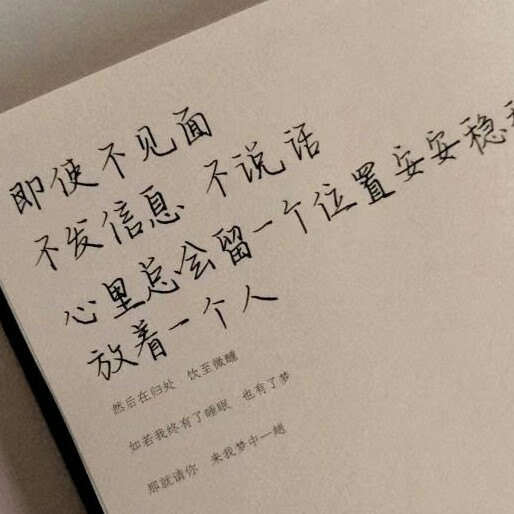 即使不见面
不发信息 不说话
心里总会留一个位置安安稳稳
放着一个人
然后在归处 饮至微醺
如若我终有了睡眠 也有了梦
那就请你 来我梦中一趟